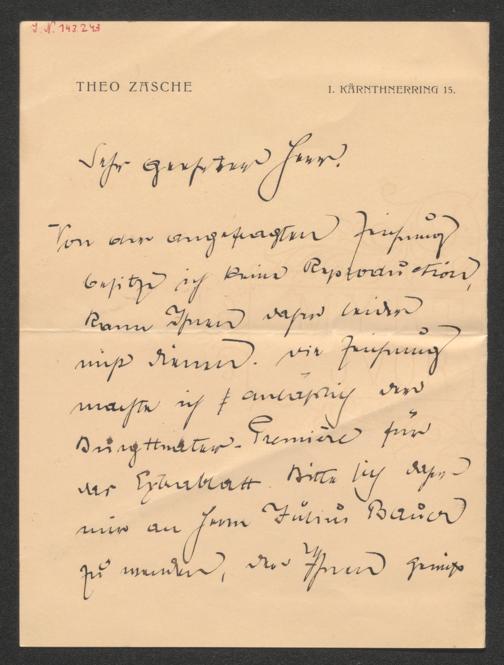 I. N. 143.243
THEO ZASCHE
I. KÄRNTHNERRING 15.
Sehr geehrter Herr.
Von der angefragten Zeichnung
besitze ich keine Reproduction,
kann Ihnen daher leider
nicht dienen. Die Zeichnung
machte ich anläßlich der
Burgtheater-Première für
das Extrablatt. Bitte sich daher
nur an Herrn Julius Bauer
zu wenden, der Ihnen gewiß